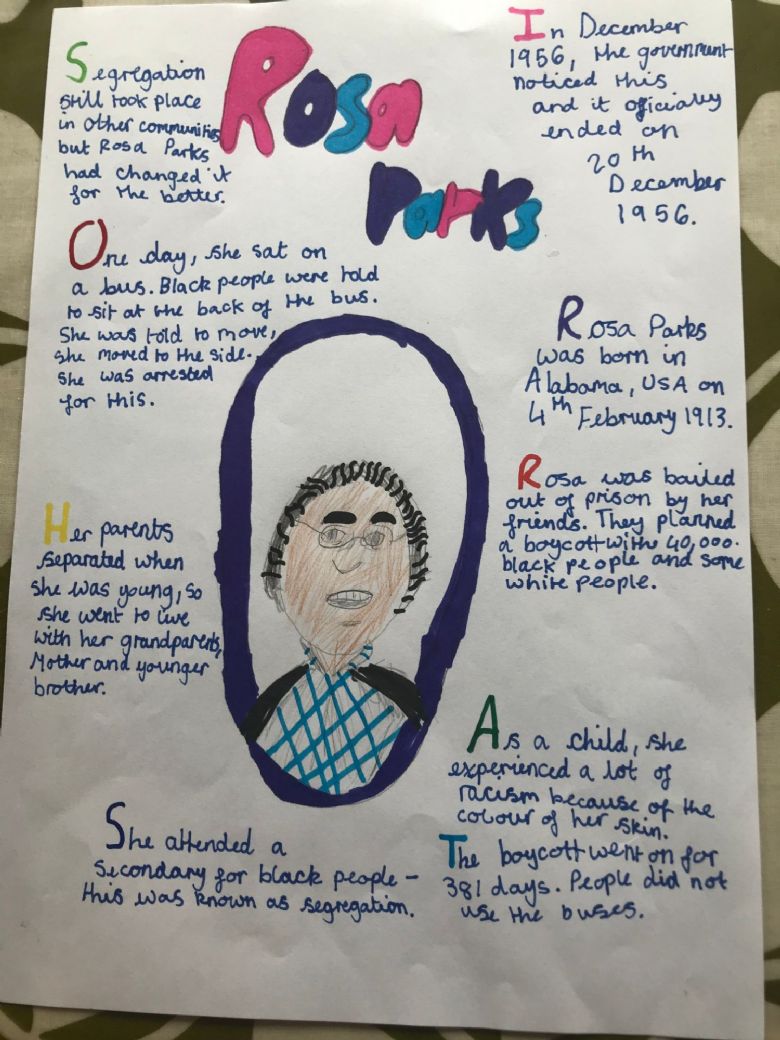 Rosa
Parks
Segregation
still took place
in other communities
but Rosa Parks
had changed it
for the better.
In December
1956, the government
noticed this
and it oficially
ended on
20th
December
1956.
One day, she sat on
a bus. Black people were told
to sit at the back of the bus.
She was told to move,
she moved to the side.
She was arrested
for this.
Rosa Parks
was born in
Alabama, USA on
4th February 1913.
Rosa was bailed
out of prison by her
friends. They planned
a boycott with 40,000.
black people and some
white people.
Her parents
separated when
she was young, so
she went to live
with her grandparents,
Mother and younger
brother.
As a child, she
experienced a lot of
racism because of the
colour of her skin.
She attended a
secondary for black people -
this was known as segregation.
The boycott went on for
381 days. People did not
use the buses.